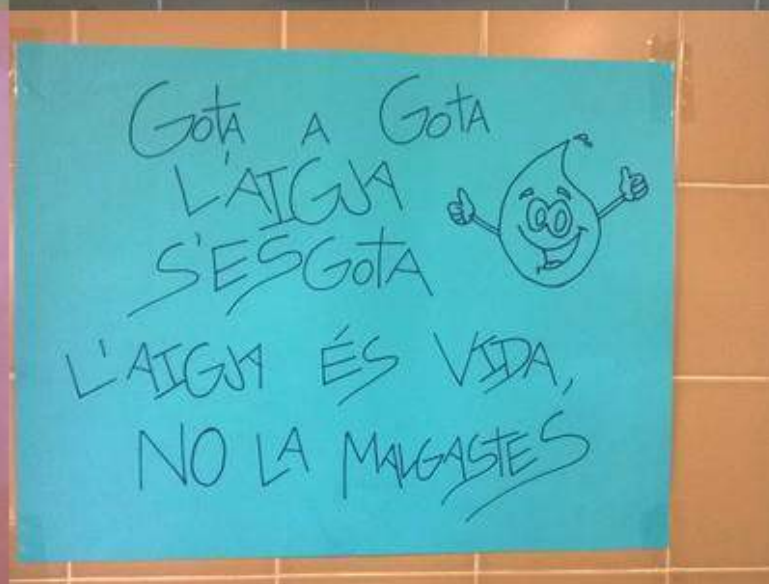 GOTA A GOTA
L'AIGUA
S'ESGOTA
L'AIGUA ÉS VIDA,
NO LA MALGASTES